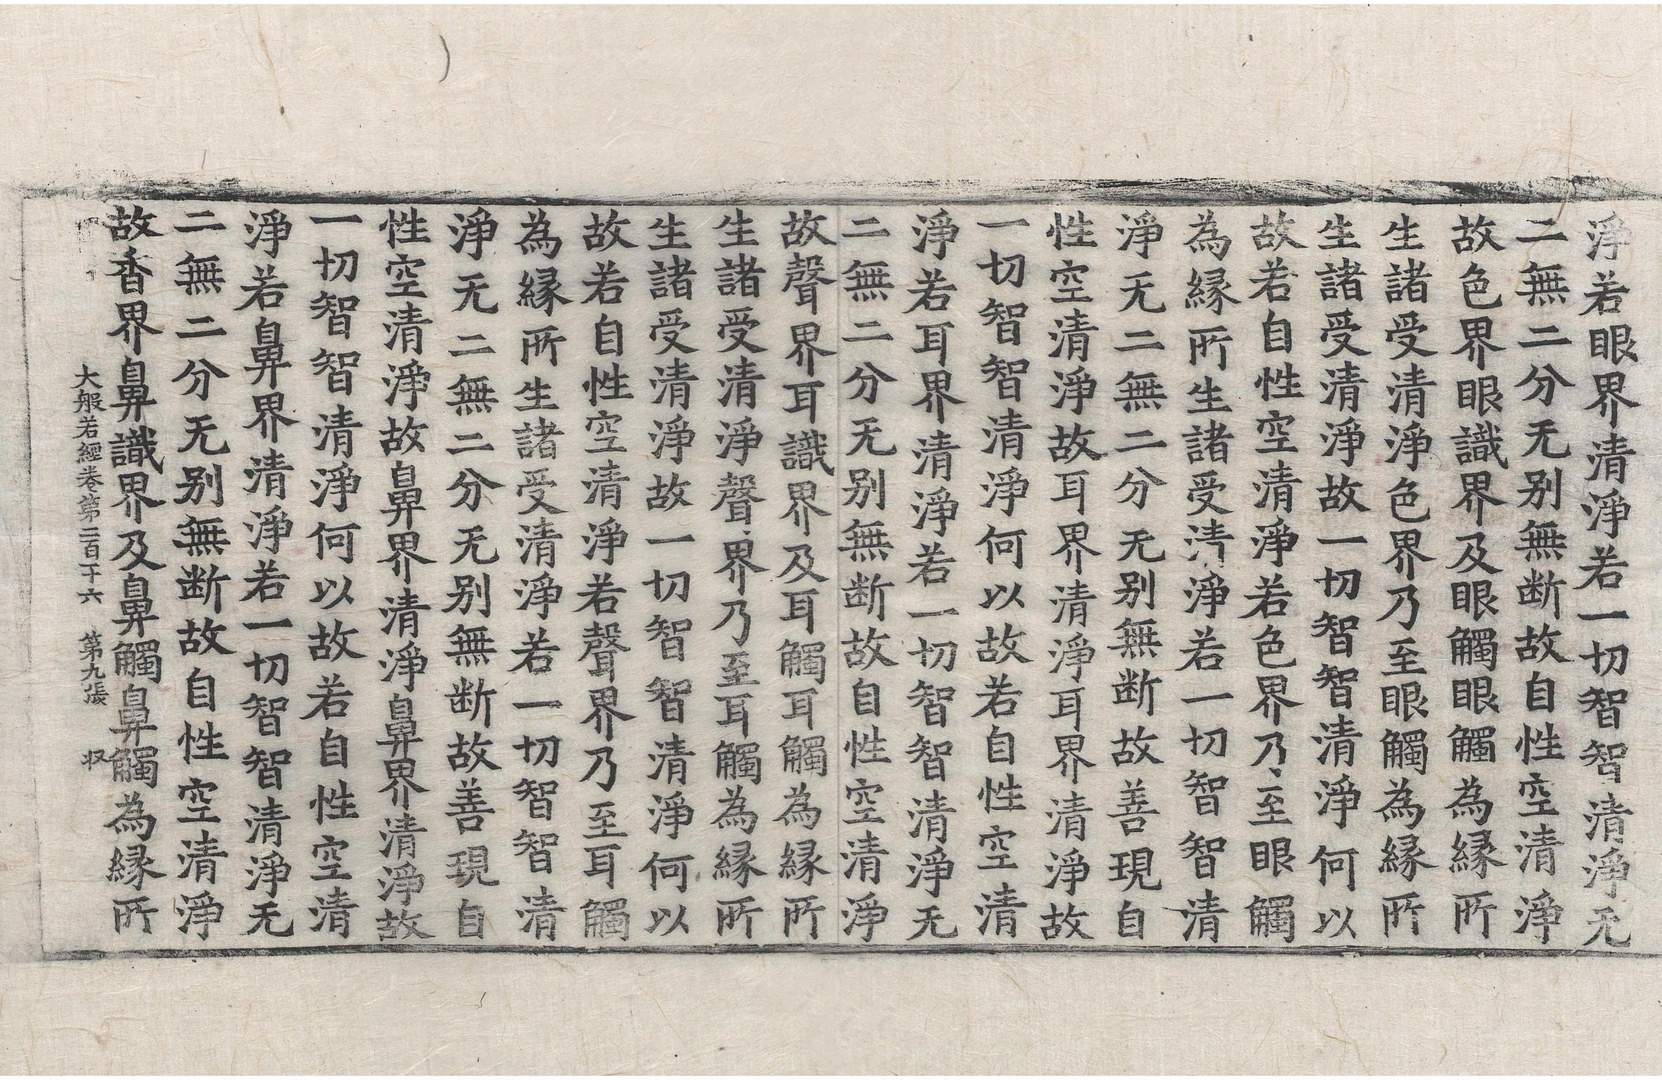 淨若眼界清淨若一切智智清淨无
二無二分无别無断故自性空清淨
故色界眼識界及眼觸眼觸為縁所
生諸受清淨色界乃至眼觸為縁所
生諸受清淨故一切智智清淨何以
故若自性空清淨若色界乃至眼觸
為縁所生諸受清淨若一切智智清
淨无二無二分无别無断故善現自
性空清淨故耳界清淨耳界清淨故
一切智智清淨何以故若自性空清
淨若耳界清淨若一切智智清淨无
二無二分无别無断故自性空清淨
故聲界耳識界及耳觸耳觸為縁所
生諸受清淨聲界乃至耳觸為縁所
生諸受清淨故一切智智清淨何以
故若自性空清淨若聲界乃至耳觸
為縁所生諸受清淨若一切智智清
淨无二無二分无别無断故善現自
性空清淨故鼻界清淨鼻界清淨故
一切智智清淨何以故若自性空清
淨若鼻界清淨若一切智智清淨无
二無二分无别無断故自性空清淨
故香界鼻識界及鼻觸鼻觸為縁所
大般若經卷第二百十六 第九張